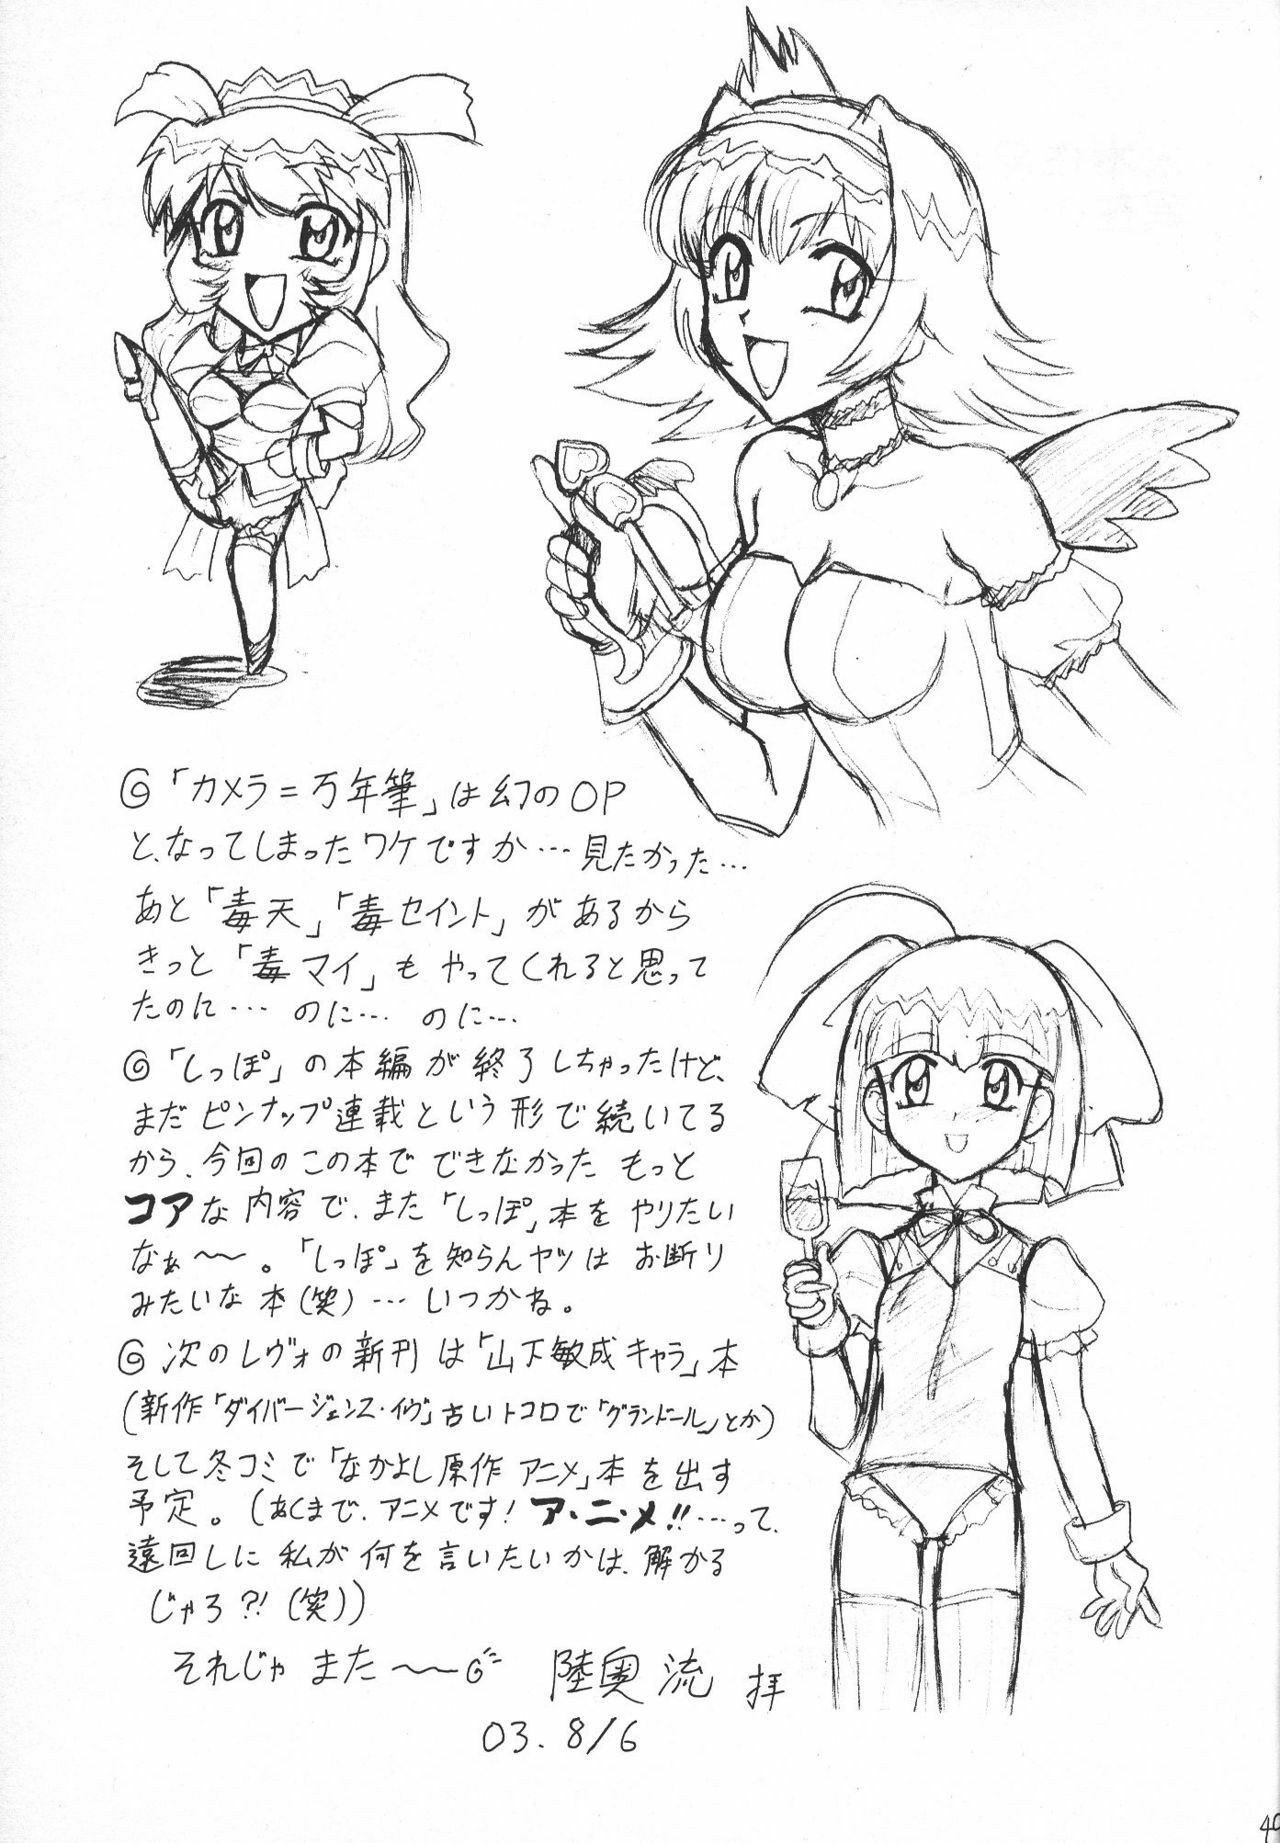 ◎「カメラ=万年筆」は幻のOP
と、なってしまったワケですか…見たかった…
あと「毒天」「毒セイント」があるから
きっと「毒マイ」もやってくれると思って
たのに… のに… のに…
◎「しっぽ」の本編が終了しちゃったけど、
まだピンナップ連載という形で続いてる
から、今回のこの本でできなかったもっと
コアな内容で、また「しっぽ」本をやりたい
なぁ〜〜。「しっぽ」を知らんヤツはお断り
みたいな本(笑)…いつかね。
◎次のレヴォの新刊は「山下敏成キャラ」本
(新作「ダイバージェンス・イヴ」古いトコロで「グランドール」とか)
そして冬コミで「なかよし原作アニメ」本を出す
予定。(あくまで、アニメです!ア・ニ・メ!!…って、
遠回しに私が何を言いたいかは、解かる
じゃろ?!(笑))
それじゃまた〜〜
陸奥流 拝
03.8/6
49